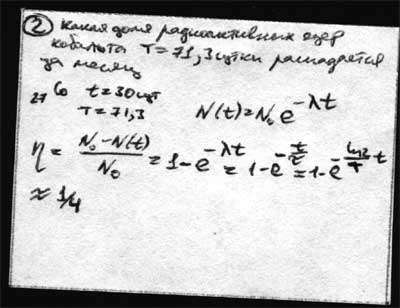 ② Какая доля радиоактивных ядер
кобальта T = 71,3 сутки распадается
за месяц
27 Co t = 30 сут
T = 71,3 N(t) = N₀ e^{-λt}
η = (N₀ - N(t))/N₀ = 1 - e^{-λt} = 1 - e^{-t/τ} = 1 - e^{-(ln2/T) t}
≈ 1/4